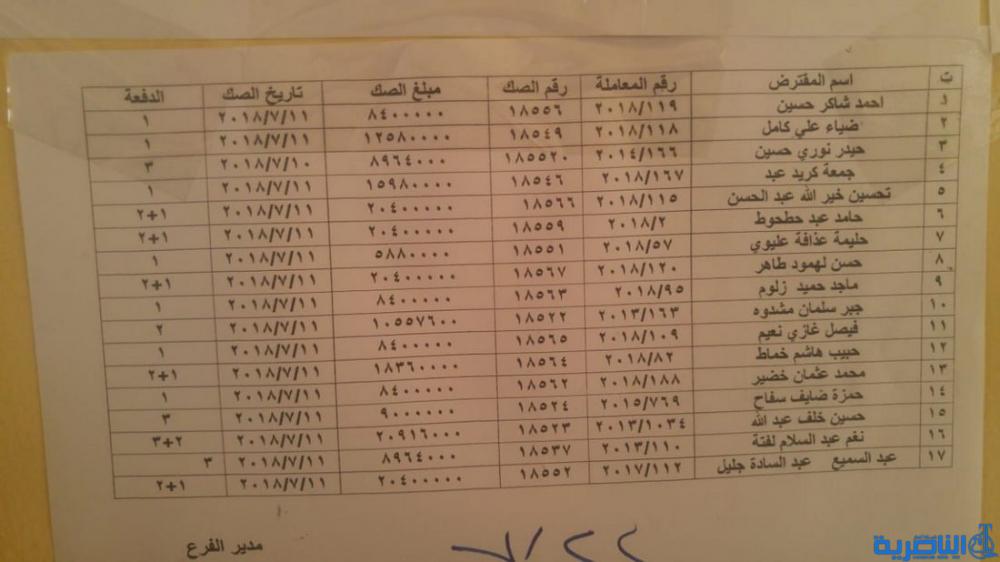 ت اسم المقترض رقم المعاملة رقم الصك مبلغ الصك تاريخ الصك الدفعة
١ احمد شاكر حسين ٢٠١٨/١١٩ ١٨٥٥٦ ٨٤٠٠٠٠٠ ٢٠١٨/٧/١١ ١
٢ ضياء علي كامل ٢٠١٨/١١٨ ١٨٥٤٩ ١٢٥٨٠٠٠٠ ٢٠١٨/٧/١١ ١
٣ حيدر نوري حسين ٢٠١٤/١٦٦ ١٨٥٥٢٠ ٨٩٦٤٠٠٠ ٢٠١٨/٧/١٠ ٣
٤ جمعة كريد عبد ٢٠١٨/١٦٧ ١٨٥٤٦ ١٥٩٨٠٠٠٠ ٢٠١٨/٧/١١ ١
٥ تحسين خير الله عبد الحسن ٢٠١٨/١١٥ ١٨٥٦٦ ٢٠٤٠٠٠٠٠ ٢٠١٨/٧/١١ ٢+١
٦ حامد عبد حطحوط ٢٠١٨/٢ ١٨٥٥٩ ٢٠٤٠٠٠٠٠ ٢٠١٨/٧/١١ ٢+١
٧ حليمة عذافة عليوي ٢٠١٨/٥٧ ١٨٥٥١ ٥٨٨٠٠٠٠ ٢٠١٨/٧/١١ ١
٨ حسن لهمود طاهر ٢٠١٨/١٢٠ ١٨٥٦٧ ٢٠٤٠٠٠٠٠ ٢٠١٨/٧/١١ ٢+١
٩ ماجد حميد زلوم ٢٠١٨/٩٥ ١٨٥٦٣ ٨٤٠٠٠٠٠ ٢٠١٨/٧/١١ ١
١٠ جبر سلمان مشدوه ٢٠١٣/١٦٣ ١٨٥٢٢ ١٠٥٥٧٦٠٠ ٢٠١٨/٧/١١ ٢
١١ فيصل غازي نعيم ٢٠١٨/١٠٩ ١٨٥٦٥ ٨٤٠٠٠٠٠ ٢٠١٨/٧/١١ ١
١٢ حبيب هاشم خماط ٢٠١٨/٨٢ ١٨٥٦٤ ١٨٣٦٠٠٠٠ ٢٠١٨/٧/١١ ٢+١
١٣ محمد عثمان خضير ٢٠١٨/١٨٨ ١٨٥٦٢ ٨٤٠٠٠٠٠ ٢٠١٨/٧/١١ ١
١٤ حمزة ضايف سفاح ٢٠١٥/٧٦٩ ١٨٥٢٤ ٩٠٠٠٠٠٠ ٢٠١٨/٧/١١ ٣
١٥ حسين خلف عبد الله ٢٠١٣/١٠٣٤ ١٨٥٢٣ ٢٠٩١٦٠٠٠ ٢٠١٨/٧/١١ ٣+٢
١٦ نغم عبد السلام لفتة ٢٠١٣/١١٠ ١٨٥٣٧ ٨٩٦٤٠٠٠ ٢٠١٨/٧/١١ ٣
١٧ عبد السميع عبد السادة جليل ٢٠١٧/١١٢ ١٨٥٥٢ ٢٠٤٠٠٠٠٠ ٢٠١٨/٧/١١ ٢+١
مدير الفرع
الناصرية